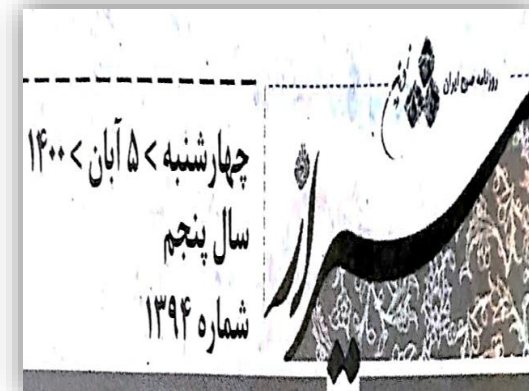 روزنامه صبح ایران
چهارشنبه > ۵ آبان > ۱۴۰۰
سال پنجم
شماره ۱۳۹۴